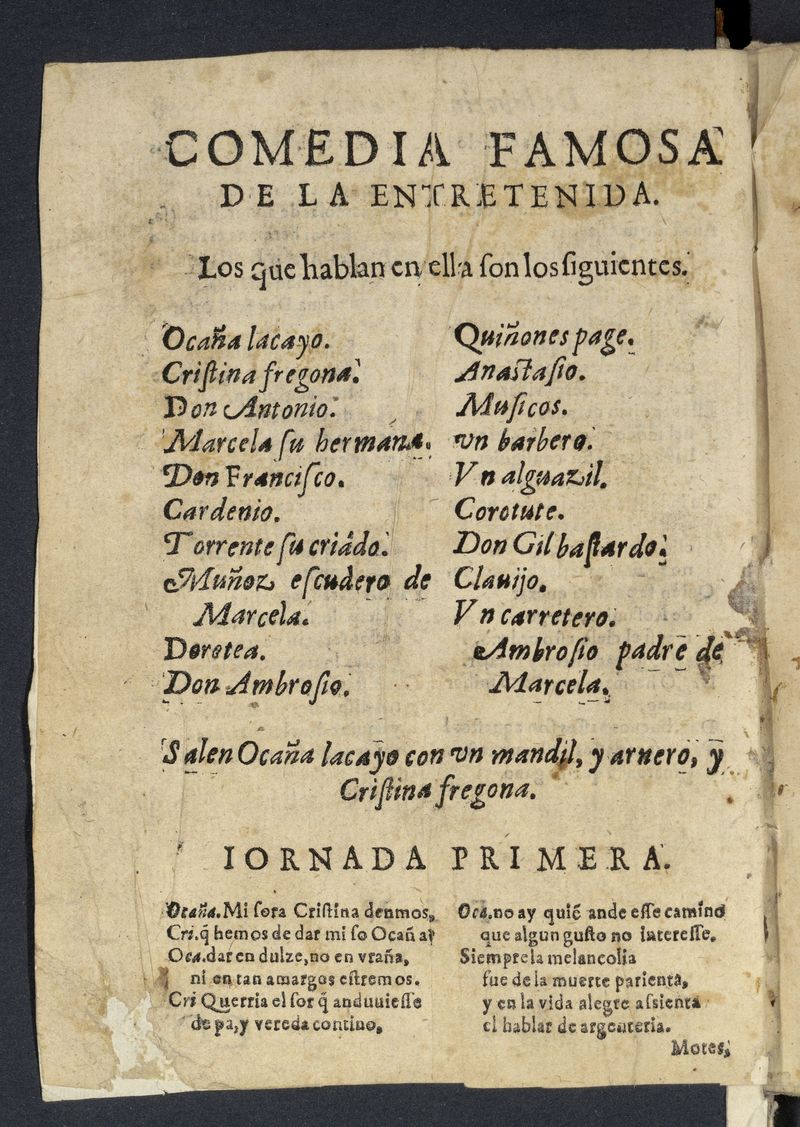 COMEDIA FAMOSA
DE LA ENTRETENIDA.
Los que hablan en ella ſon los ſiguientes.
Ocaña lacayo.
Criſtina fregona.
Don Antonio.
Marcela ſu hermana.
Don Franciſco.
Cardenio.
Torrente ſu criado.
Muñoz eſcudero de
Marcela.
Dorotea.
Don Ambroſio.
Quiñones page.
Anaſtaſio.
Muſicos.
vn barbero.
Vn alguazil.
Corotute.
Don Gil baſtardo.
Clauijo.
Vn carretero.
Ambroſio padre de
Marcela.
Salen Ocaña lacayo con vn mandil, y arnero, y
Criſtina fregona.
IORNADA PRIMERA.
Ocaña. Mi ſora Criſtina denmos,
Cri. q̃ hemos de dar mi ſo Ocaña?
Oca. dar en dulze, no en vraña,
ni en tan amargos eſtremos.
Cri Querria el ſor q̃ anduuieſſe
de pa, y vereda contino,
Oca. no ay quiẽ ande eſſe camino
que algun guſto no intereſſe.
Siempre la melancolia
fue de la muerte parienta,
y en la vida alegre aſsienta
el hablar de argenteria.
Motes,